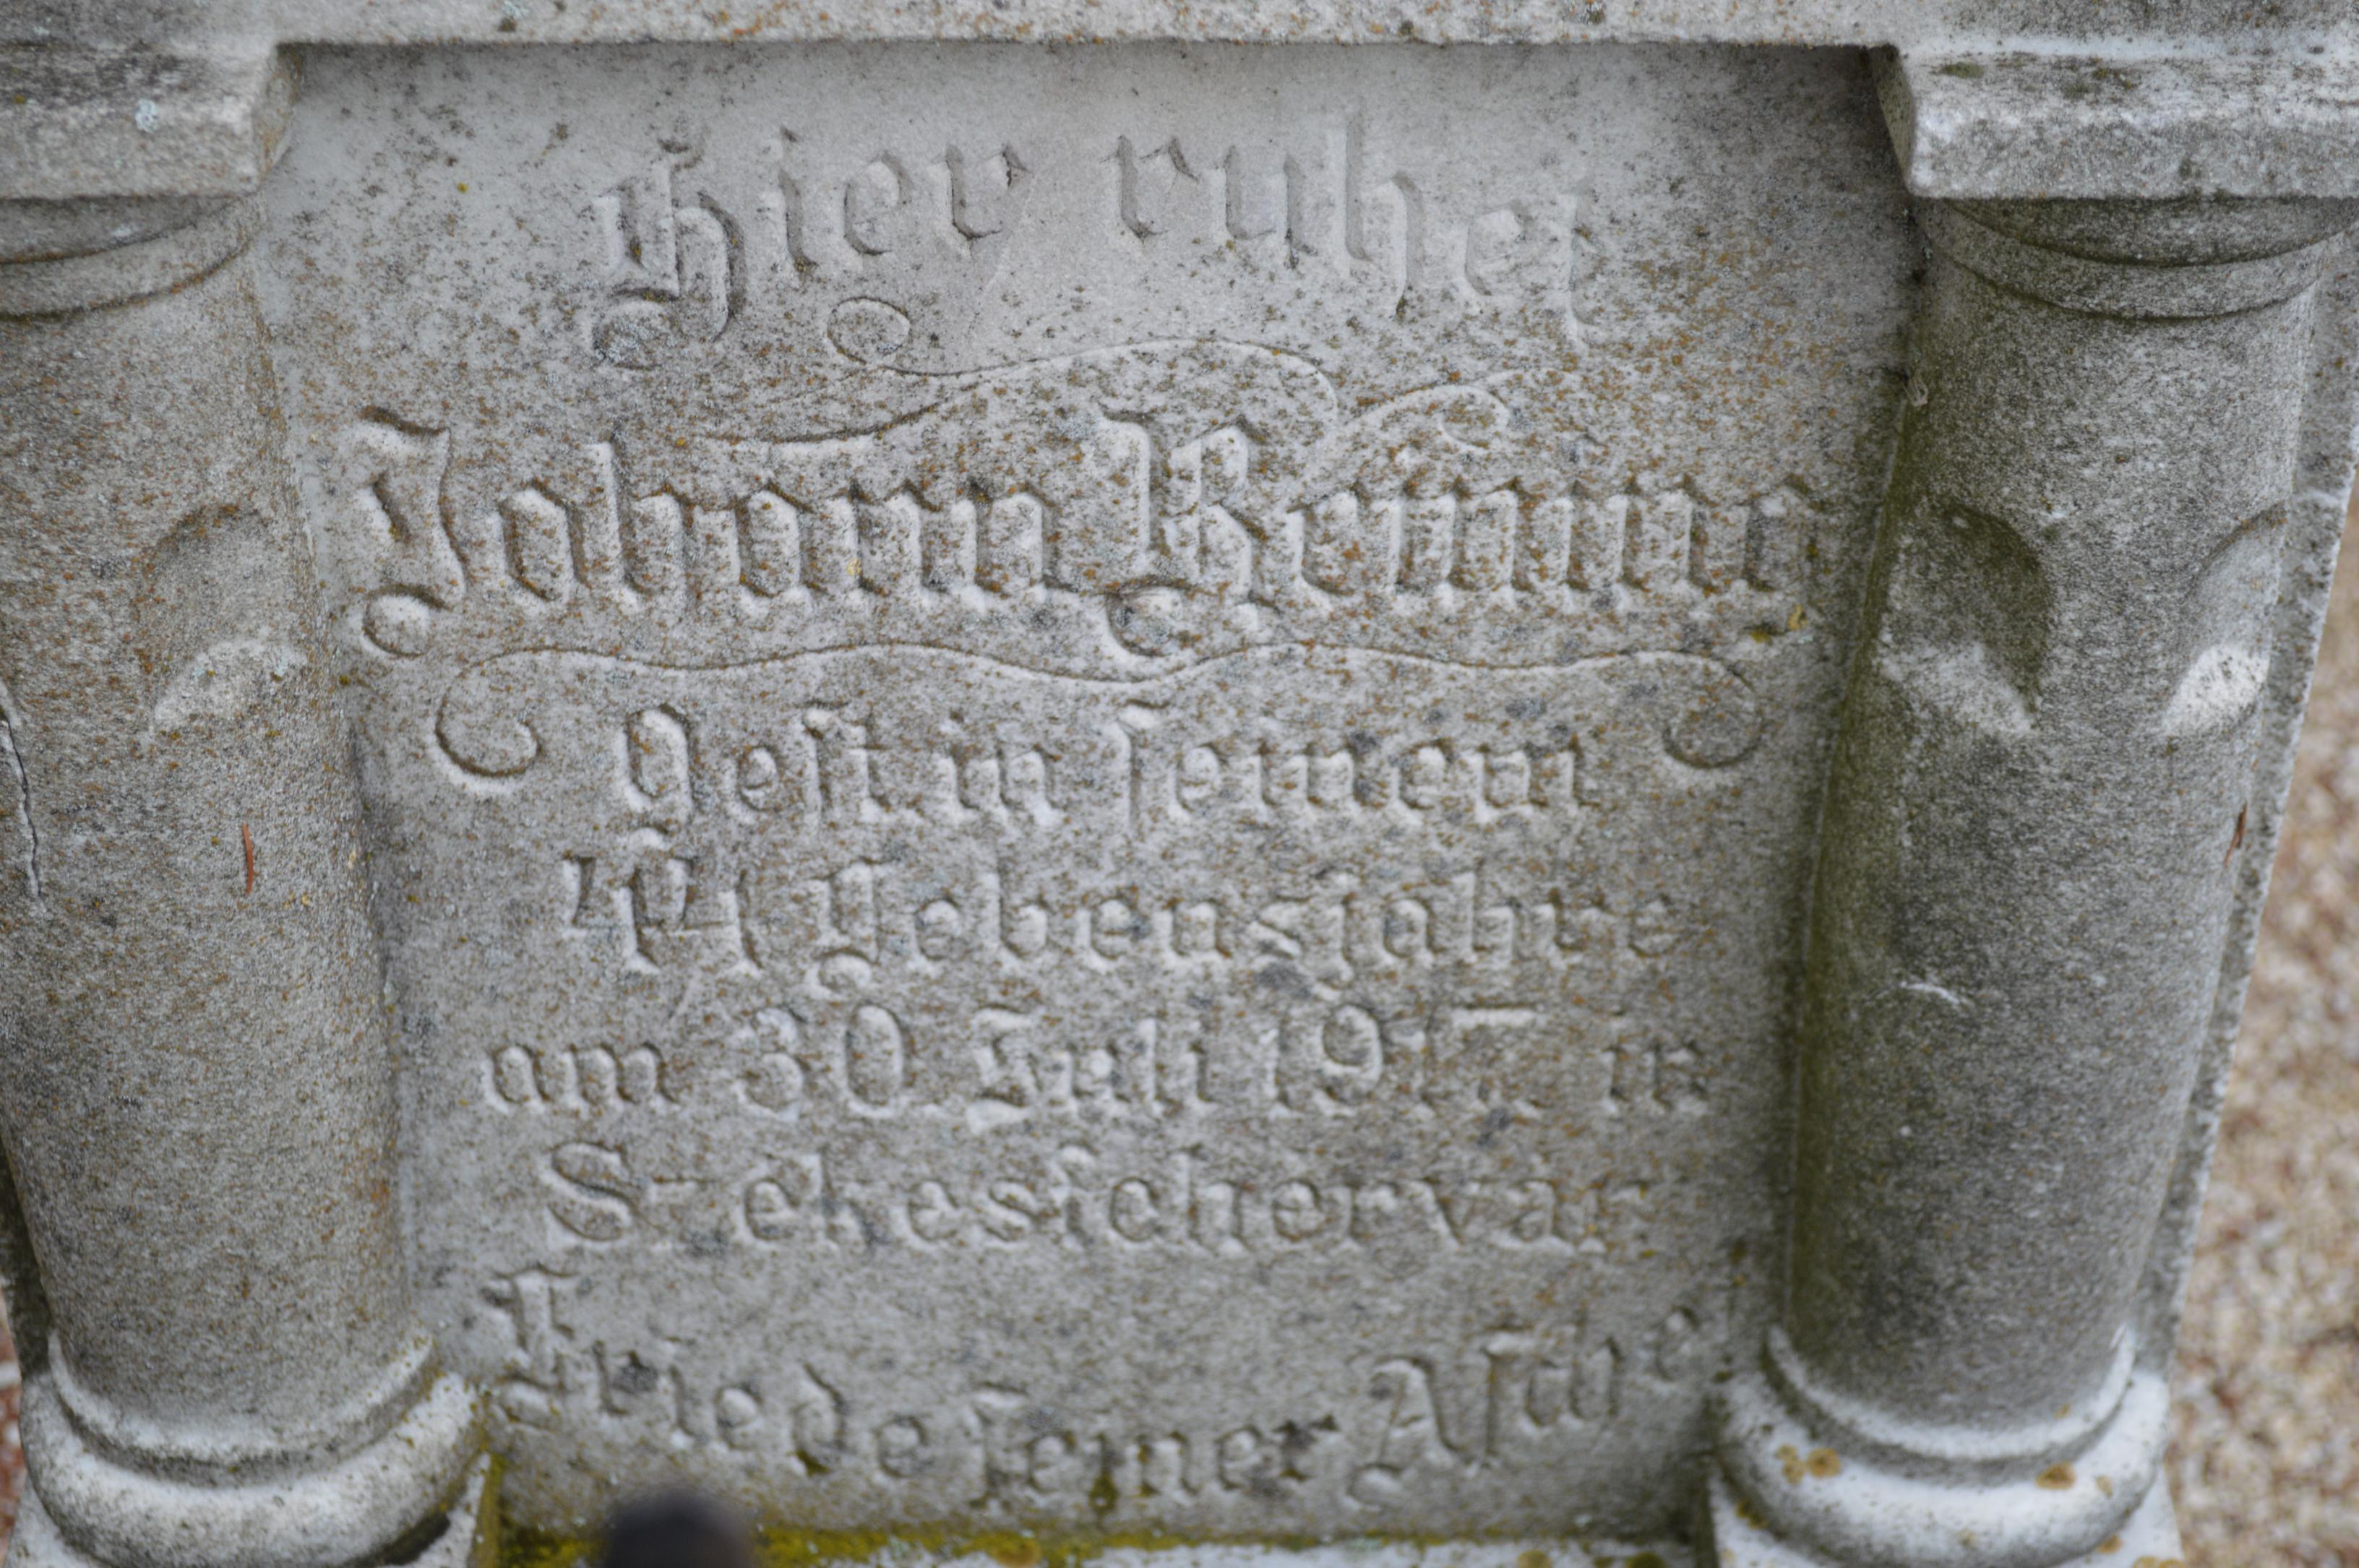 Hier ruhet
Johann
Gest. in seinem
44 Lebensjahre
am 30 Juli 1917. in
S-ekesfehervar
Friede seiner Asche